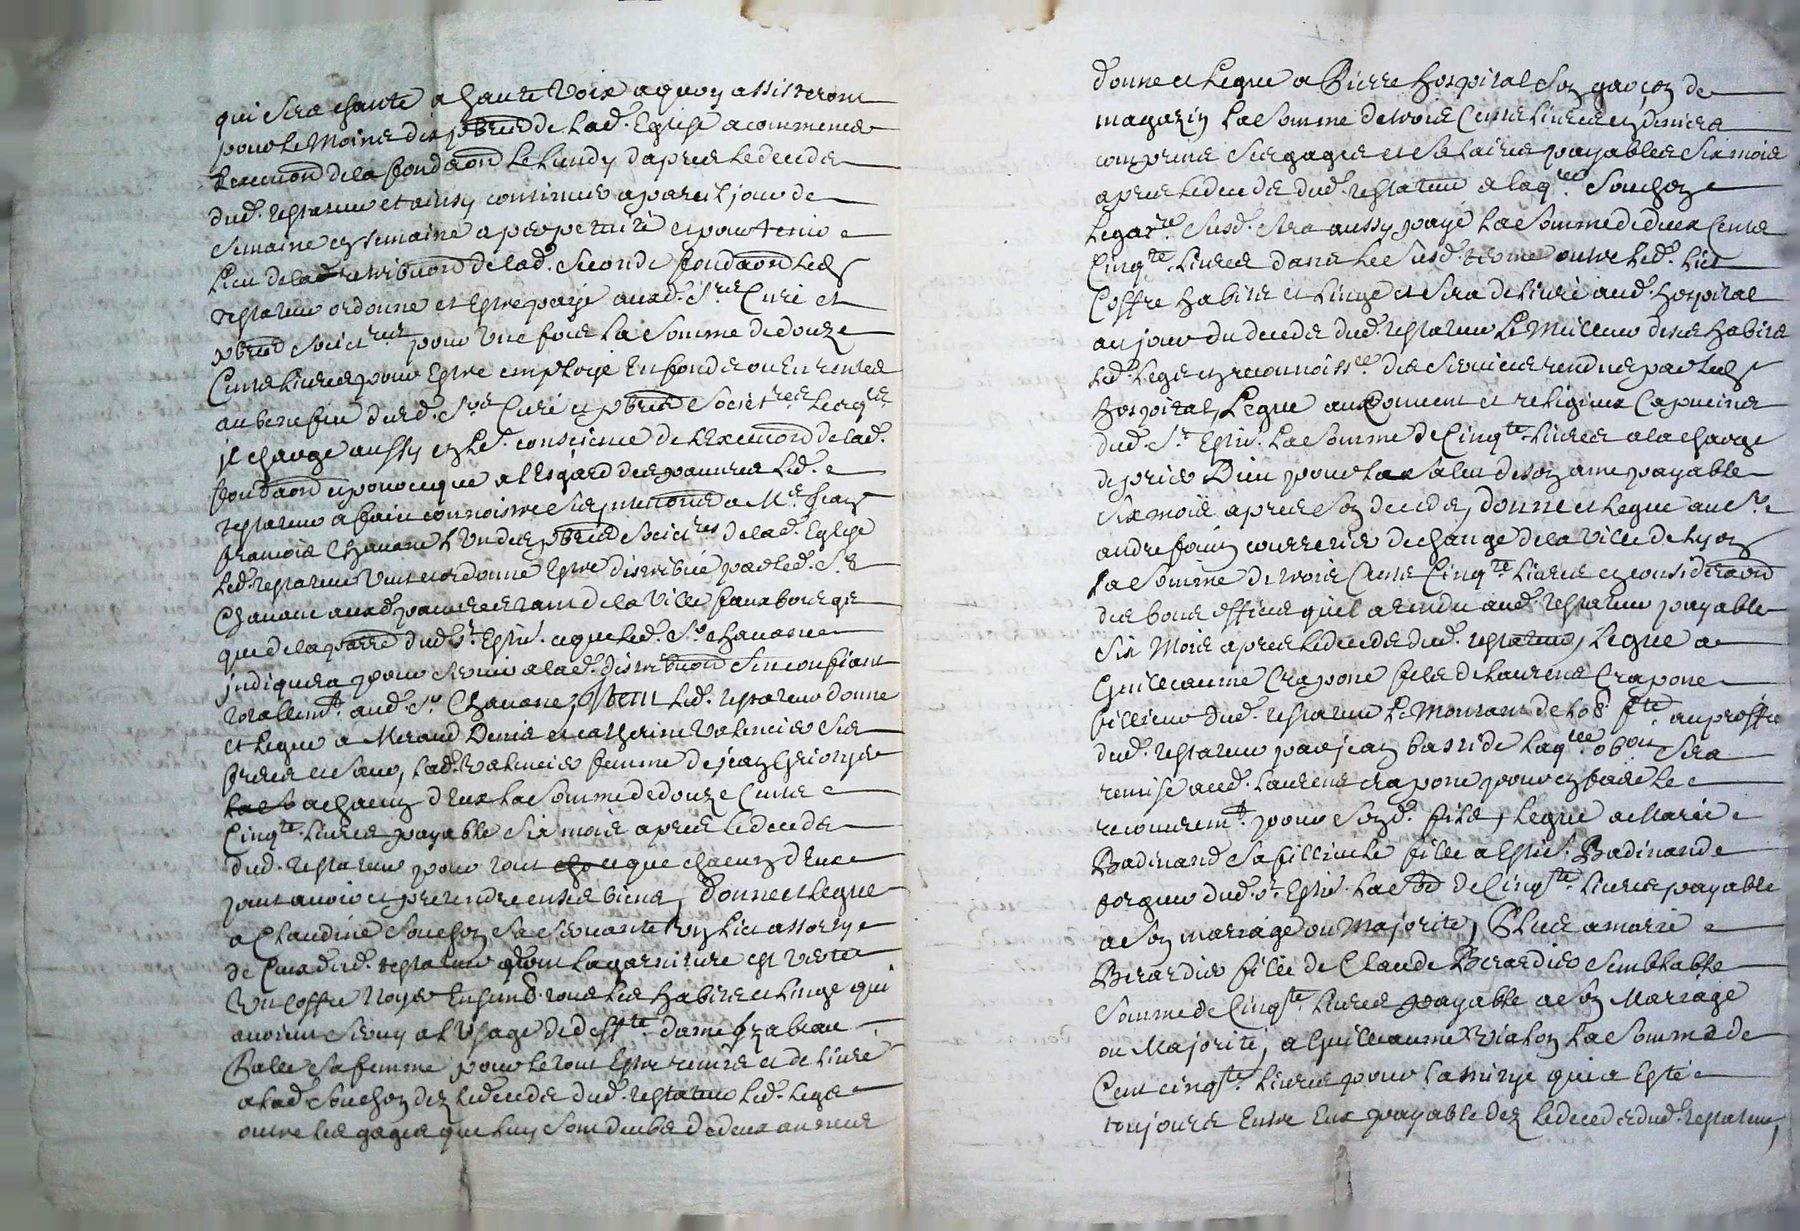 qui sera chanté a haute voix a quoy assisteront
pour le moins dix pbres de lad. Eglise a commencer
lexecuon de la fondaon le lundy dapres le decedz
dud. testateur et ainsy continuer a pareil jour de
semaine en semaine a perpetuité et pour tenir
lieu de lad. retribuon de lad. seconde fondaon led.
testateur ordonne et estre payé auxd. Srs Curé et
pbres Societres pour une fois la somme de douze
Cents livres pour Estre employé En fondz ou En rentes
au benefice desd. Srs Curé et pbres Societres lesqls
jl charge aussy en le. conscience de lexecuon de lad.
fondaon et pour ce que a lEsgard des pauvres led.
testateur a fait connoistre ses jntentions a Mre Jean
francois Chavane lun des pbres Societres de lad. Eglise
led. testateur veut et ordonne Estre distribué par led. Sr
Chavane auxd. pauvres tant de la ville fauxbourgs
que de la parre dud. St Estne. ce que led. Sr Chavane
jndiquera pour servir a lad. distribuon sen confiant
totallemt. aud. Sr Chavane, Jtem led. testateur donne
et legue a Meraud Denis et catherine valencier ses
freres et sœur, lad. valencier femme de jean Grionjer
a chacun dEux la somme de douze Cents
Cinqte. livres payable six mois apres le decedz
dud. testateur pour tout ce que chacun dEux
peut avoir et pretendre en ses biens, donne et legue
a Claudine Souchon sa servante un lict assorty
de Cuer dud. testateur dont la garniture est verte
Un Coffre noyer Ensemb. tous les habits et linge qui
avoient servy a lusage de deffte. dame jzabeau
Balle sa femme pour le tout Estre remis et delivré
a lad. Souchon dez le decedz dud. testateur led. legs
outre les gages que luy sont deubs de deux années
donne et legue a Pierre hospital son garçon de
magazin la somme de trois Cents livres en deniers
comprins ses gages et salaires payables six mois
apres le decedz dud. testateur a laqlle Souchon
legatre. susd. sera aussy payé la somme de deux Cents
Cinqte. livres dans le susd. terme outre led. lict
Coffre habits et linge et sera delivré aud. hospital
au jour du decedz dud. testateur le meilleur de ses habits
led. legs en reconnoissce des services rendus par led.
hospital, Legue aux Couvent et religieux Capucins
dud. St Estne. la somme de Cinqte. livres a la charge
de prier Dieu pour le salut de son ame payable
six mois apres son decedz, donne et legue au Sr
andre fouin courretier de change de la ville de Lyon
la somme de trois Cents Cinqte livres en consideraon
des bons offices quil a rendu aud. testateur payable
six mois apres le decedz dud. testateur, Legue a
Guillaume Crapone fils de laurens Crapone
fillieul dud. testateur le montant de lob. fte. au proffit
dud. testateur par jean bastide laqlle obon sera
remise aud. laurens crapone pour en faire le
recouvremt. pour sond. fils, legue a Marie
Badinand sa fillieule fille a Estne. Badinand
forgeur dud. St Estne. la some de Cinqte. livres payable
a son mariage ou majorité, Plus a marie
Berardier fille de Claude Berardier semblable
somme de Cinqte livres payable a son Mariage
ou Majorité, a Guillaume Vialon la somme de
Cent cinqte. livres pour lamitye qui a Esté
toujours Entre Eux payable dez le decedz dud. testateur,